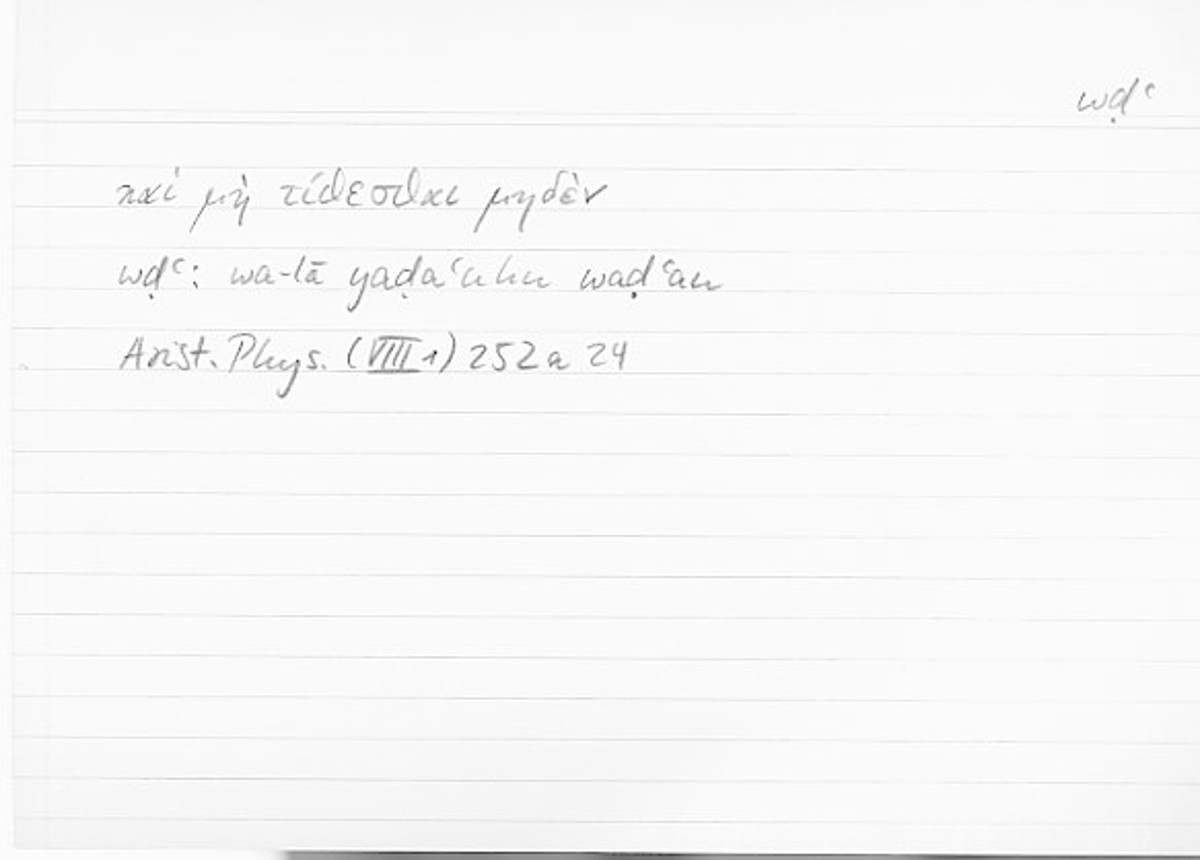 wḍʿ
καὶ μὴ τίθεσθαι μηδὲν
wḍʿ: wa-lā yaḍaʿuhu waḍʿan
Arist. Phys. (VIII 1) 252 a 24